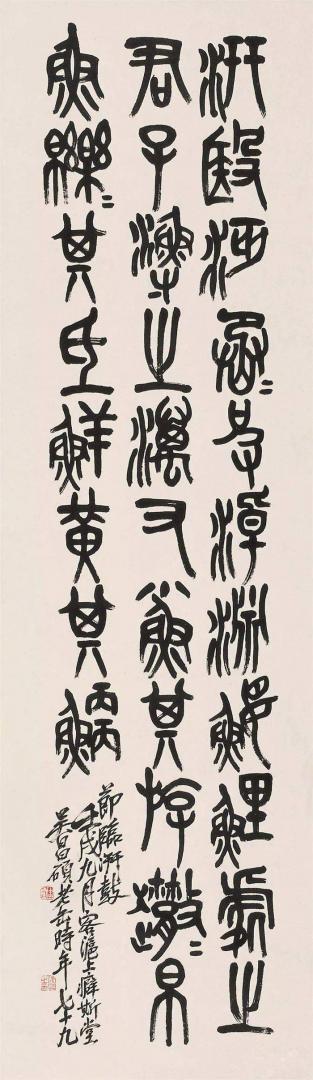 汧殹沔丞〻皮淖淵鰋鯉處之
君子漁之澫又小魚其斿趣〻帛
魚皪〻其氐鮮黃其鯾
節臨汧鼓
壬戌九月客滬上癖斯堂
吳昌碩老缶時年七十九